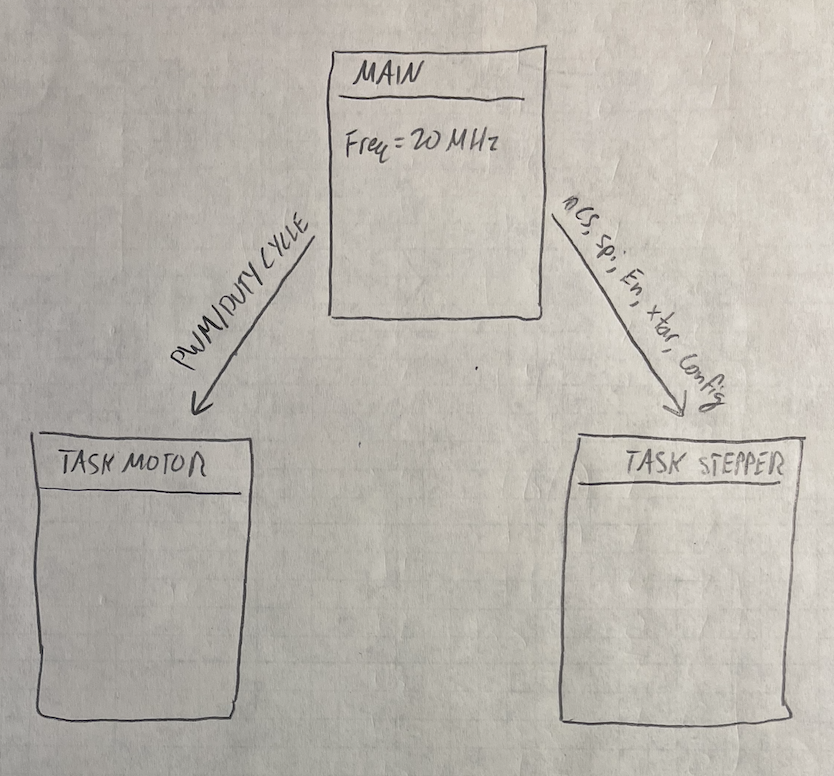 MAIN
Freq = 20 MHz
PWM/DUTY CYCLE
nCS, spi, En, xtar, config
TASK MOTOR
TASK STEPPER